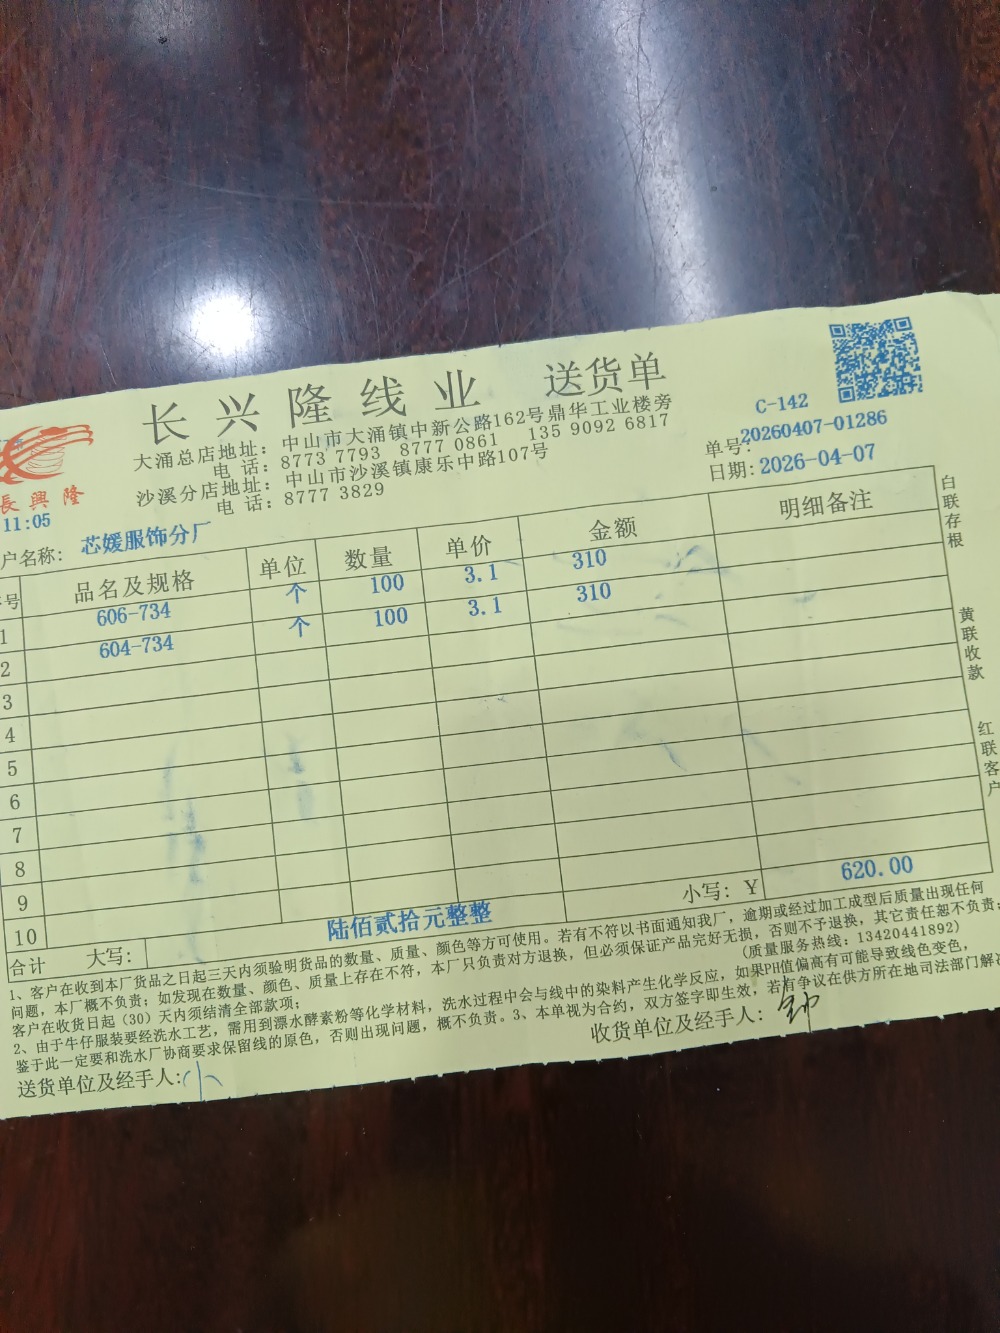 长兴隆线业 送货单
大涌总店地址：中山市大涌镇中新公路162号鼎华工业楼旁
电 话：8773 7793 8777 0861 135 9092 6817
沙溪分店地址：中山市沙溪镇康乐中路107号
电 话：8777 3829
C-142
单号：20260407-01286
日期：2026-04-07
長興隆
11:05
户名称：芯媛服饰分厂
号 品名及规格 单位 数量 单价 金额 明细备注
1 606-734 个 100 3.1 310
2 604-734 个 100 3.1 310
3
4
5
6
7
8
9
10
合计 大写：陆佰贰拾元整整 小写：Y 620.00
白联存根
黄联收款
红联客户
1、客户在收到本厂货品之日起三天内须验明货品的数量、质量、颜色等方可使用。若有不符以书面通知我厂，逾期或经过加工成型后质量出现任何
问题，本厂概不负责；如发现在数量、颜色、质量上存在不符，本厂只负责对方退换，但必须保证产品完好无损，否则不予退换，其它责任恕不负责；
客户在收货日起（30）天内须结清全部款项； （质量服务热线：13420441892）
2、由于牛仔服装要经洗水工艺，需用到漂水酵素粉等化学材料，洗水过程中会与线中的染料产生化学反应，如果PH值偏高有可能导致线色变色，
鉴于此一定要和洗水厂协商要求保留线的原色，否则出现问题，概不负责。3、本单视为合约，双方签字即生效，若有争议在供方所在地司法部门解决
送货单位及经手人： 收货单位及经手人：